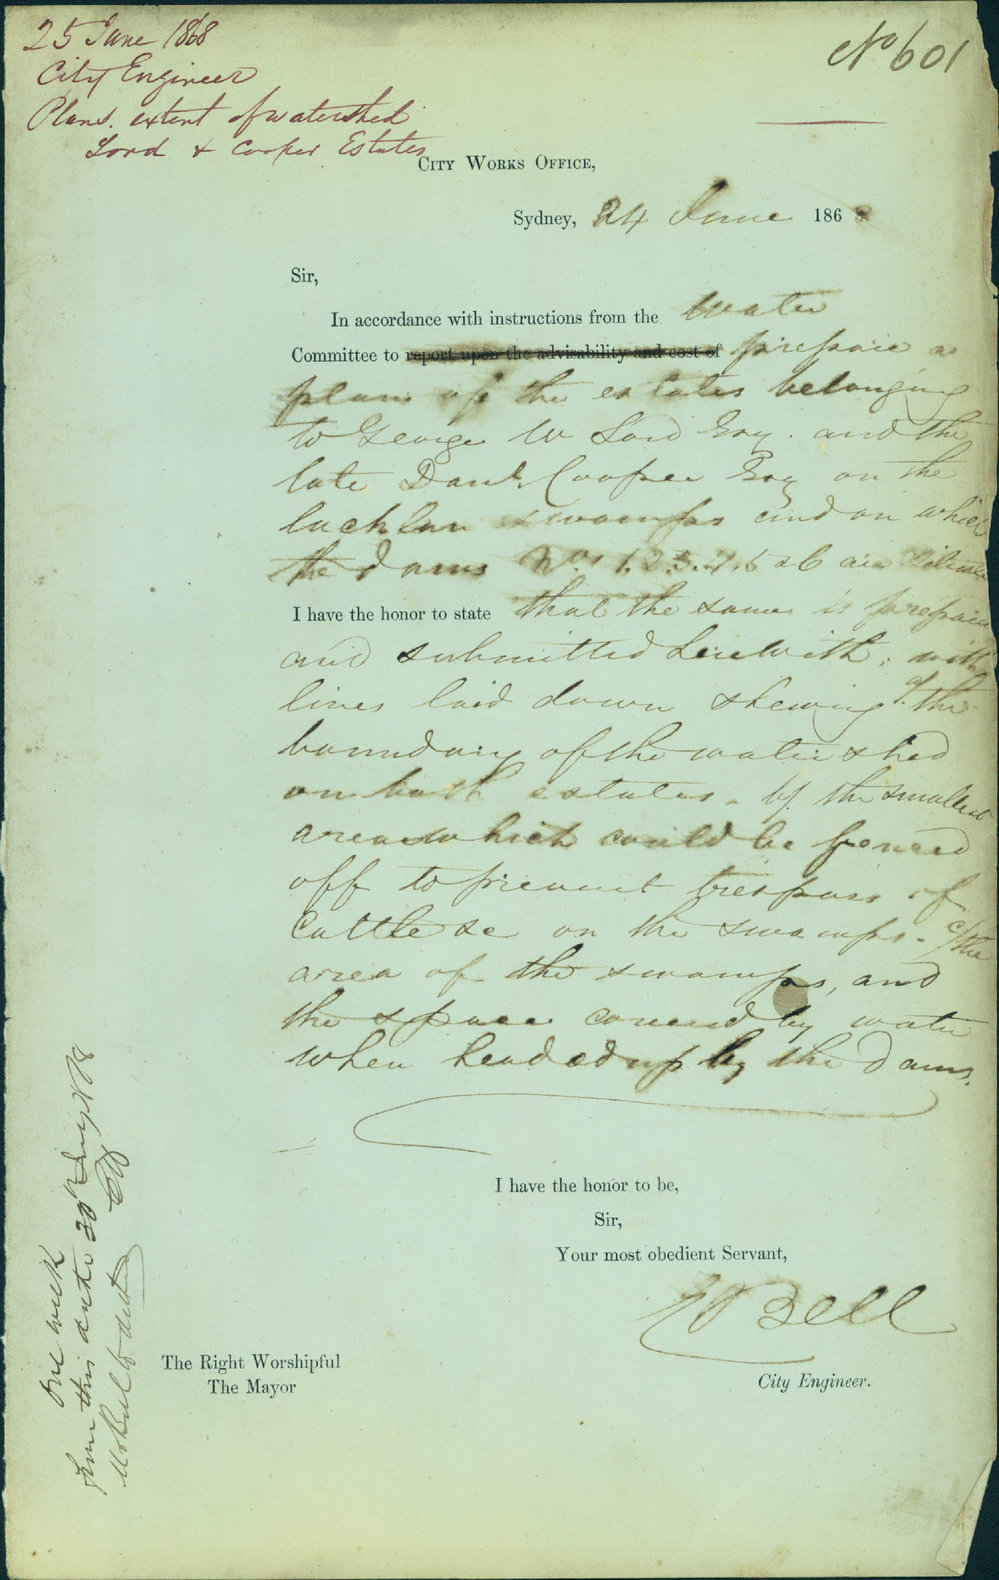 25 June 1868
City Engineer
Plans. extent of watershed
Lord & Cooper Estates
No 601
City Works Office,
Sydney, 24 June 1868
Sir,
In accordance with instructions from the Water
Committee to report upon the advisability and cost of prepare a
plan of the estates belonging
to George W Lord Esq. and the
late Danl. Cooper Esq on the
Lachlan swamps and on which
the dams Nos 1.2.3.4.5 & 6 are situate
I have the honor to state that the same is prepared
and submitted herewith, with
lines laid down shewing a/. the
boundary of the watershed
on both estates. b/. the smallest
area which could be fenced
off to prevent trespass of
Cattle &c on the swamps. c/ the
area of the swamps, and
the space covered by water
when headed up by the dams.
I have the honor to be,
Sir,
Your most obedient Servant,
E Bell
City Engineer.
The Right Worshipful
The Mayor
One week
from this date 20